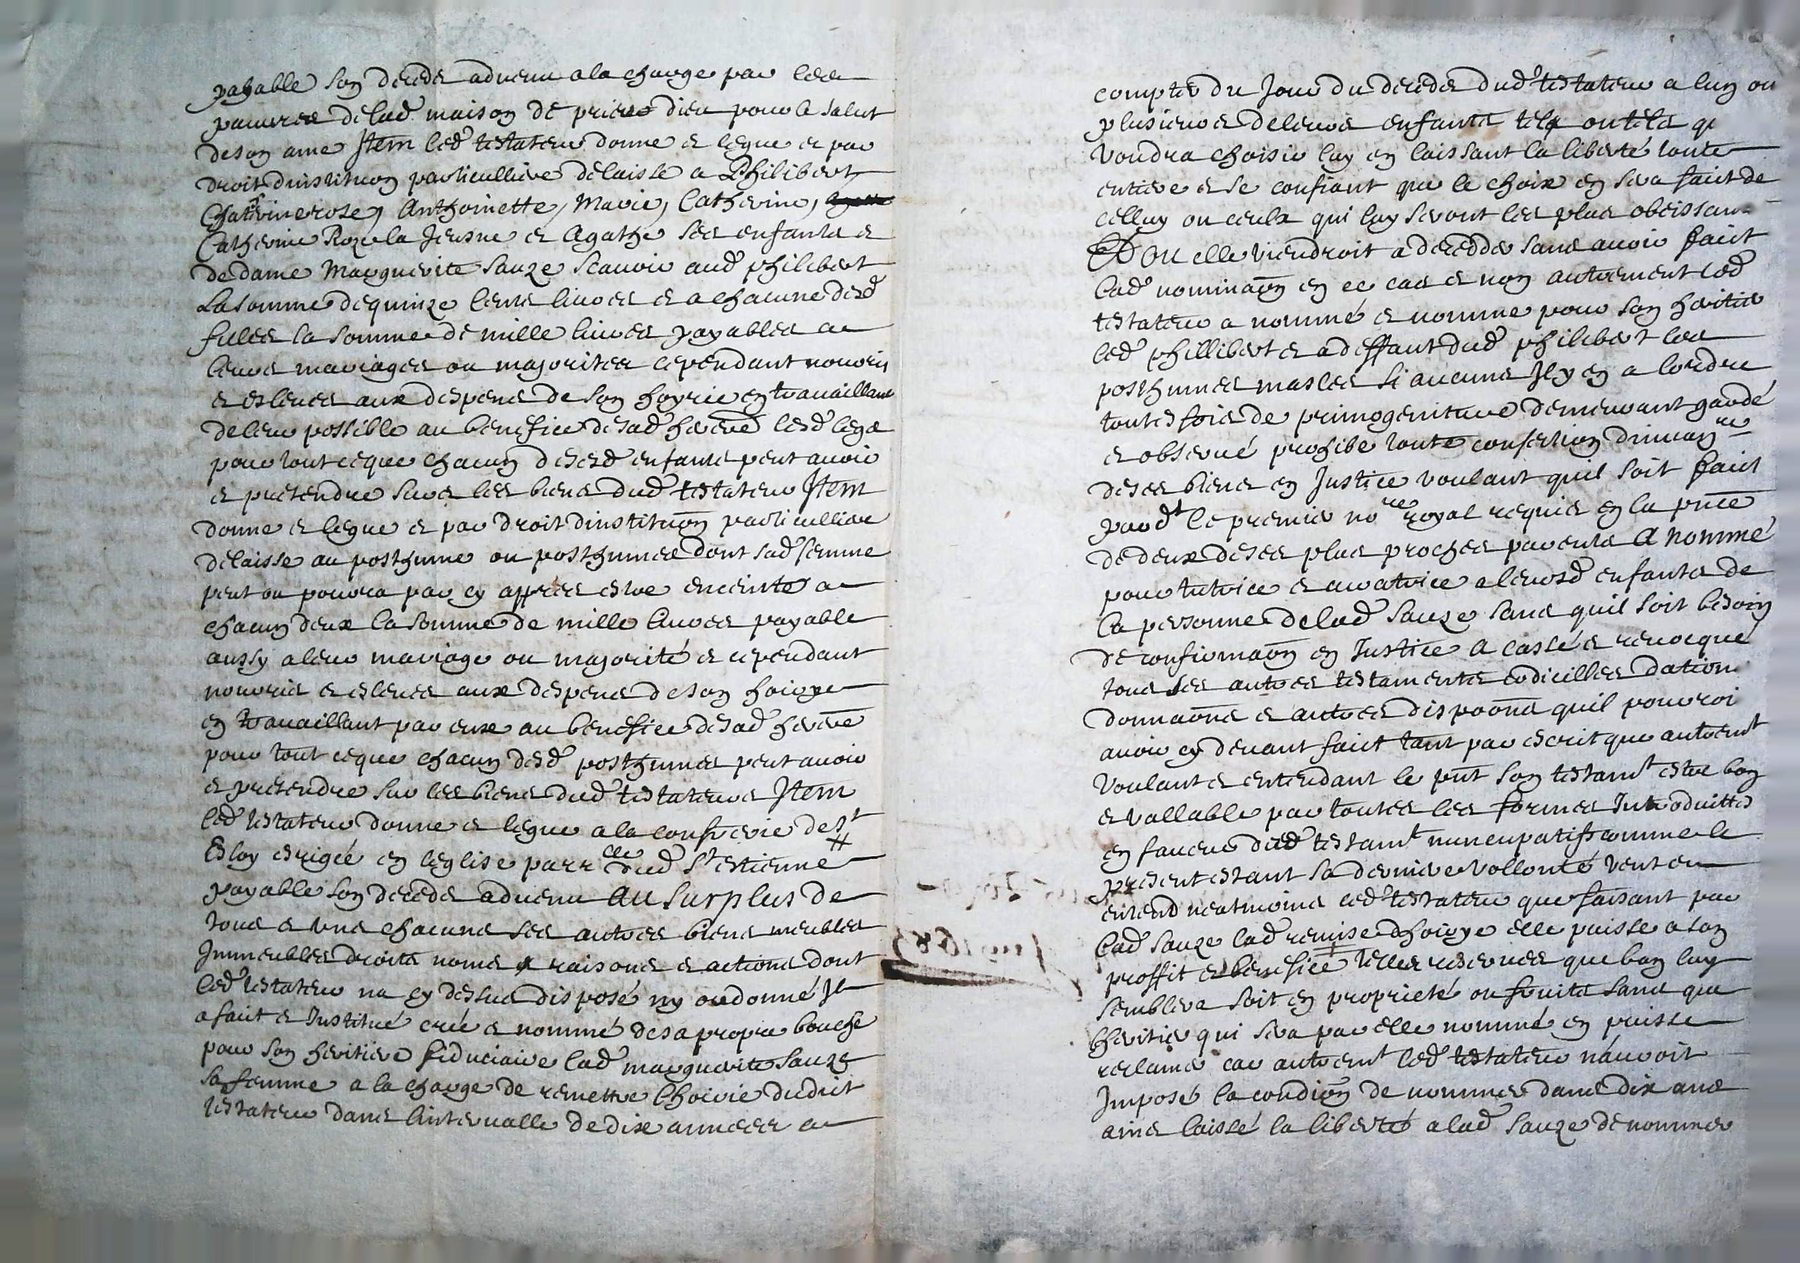 payable son deceds advenu a la charge par les
pauvres de lad maison de prier dieu pour le salut
de son ame Item led testateur donne et legue et par
droit dinstitution particulliere delaisse a Philibert
Chaterine rose, Anthoinette, Marie, Catherine,
Catherine Roze la Jeusne et Agathe ses enfants et
de dame Marguerite Sauze scavoir aud philibert
La somme de quinze cents livres et a chacune desd
filles la somme de mille livres payables a
leurs mariages ou majorites cependant nourris
et esleves aux despens de son hoyrie en travaillant
de leur possible au benefice de sad herene lesd legs
pour tout ce que chacun de sesd enfants peut avoir
et pretendre sur les biens dud testateur Item
donne et legue et par droit dinstitution particulliere
delaisse au posthume ou posthumes dont sad femme
peut ou pourra par cy appres estre enceinte a
chacun deux la somme de mille livres payable
aussy a leur mariage ou majorité et cependant
nourris et esleves aux despens de son hoirye
en travaillant par eux au benefice de sad herene
pour tout ce que chacun desd posthumes peut avoir
et pretendre sur les biens dud testateur Item
led testateur donne et legue a la confrerie de St
Eloy erigée en leglise parrlle dud St Estienne
payable son deceds advenu Au surplus de
tous et uns chacuns ses autres biens meubles
Immeubles droits noms raisons et actions dont
led testateur na cy dessus disposé ny ordonné Il
a fait et Institué créé et nommé de sa propre bouche
pour son heritiere fiduciaire lad marguerite Sauze
sa femme a la charge de remettre lhoirie dudit
testateur dans lintervalle de dix annees a
compter du jour du deceds dud testateur a lun ou
plusieurs de leurs enfants tels ou tels q
voudra choisir luy en laissant la liberté toute
entiere et se confiant que le choix en sera fait de
celluy ou ceulx qui luy seront les plus obeissan
Et Ou elle viendroit a deceder sans avoir fait
lad nominaon en ce cas et non autrement led
testateur a nommé et nomme pour son heritier
led phillibert et a deffaut dud philibert les
posthumes masles si aucuns Il y en a lordre
toutesfois de primogeniture demeurant gardé
et observé prohibe toute confection dinvanre
de ses biens en Justice voulant quil soit fait
par dt le premier nore royal requis en la pnce
de deux de ses plus proches parents A nommé
pour tutrice et curatrice a leursd enfants de
la personne de lad Sauze sans quil soit besoin
de confirmaon en Justice A cassé et revocqué
tous ses autres testaments codicilles dation
donnaons et autres dispoons quil pourroi
avoir cy devant fait tant par escrit que autremt
voulant et entendant le pnt son testamt estre bon
et vallable par toutes les formes Introduittes
en faveur dud testamt nuncupatif comme le
present estant sa derniere vollonté veut et
entend neatmoins led testateur que faisant par
lad Sauze lad remise dhoirye elle puisse a son
proffit et benefice telles reserves que bon luy
semblera soit en proprieté ou fruits sans que
lheritier qui sera par elle nommé en puisse
reclamer car autremt led testateur nauroit
Imposé la condion de nommer dans dix ans
ains laissé la liberté a lad Sauze de nommer